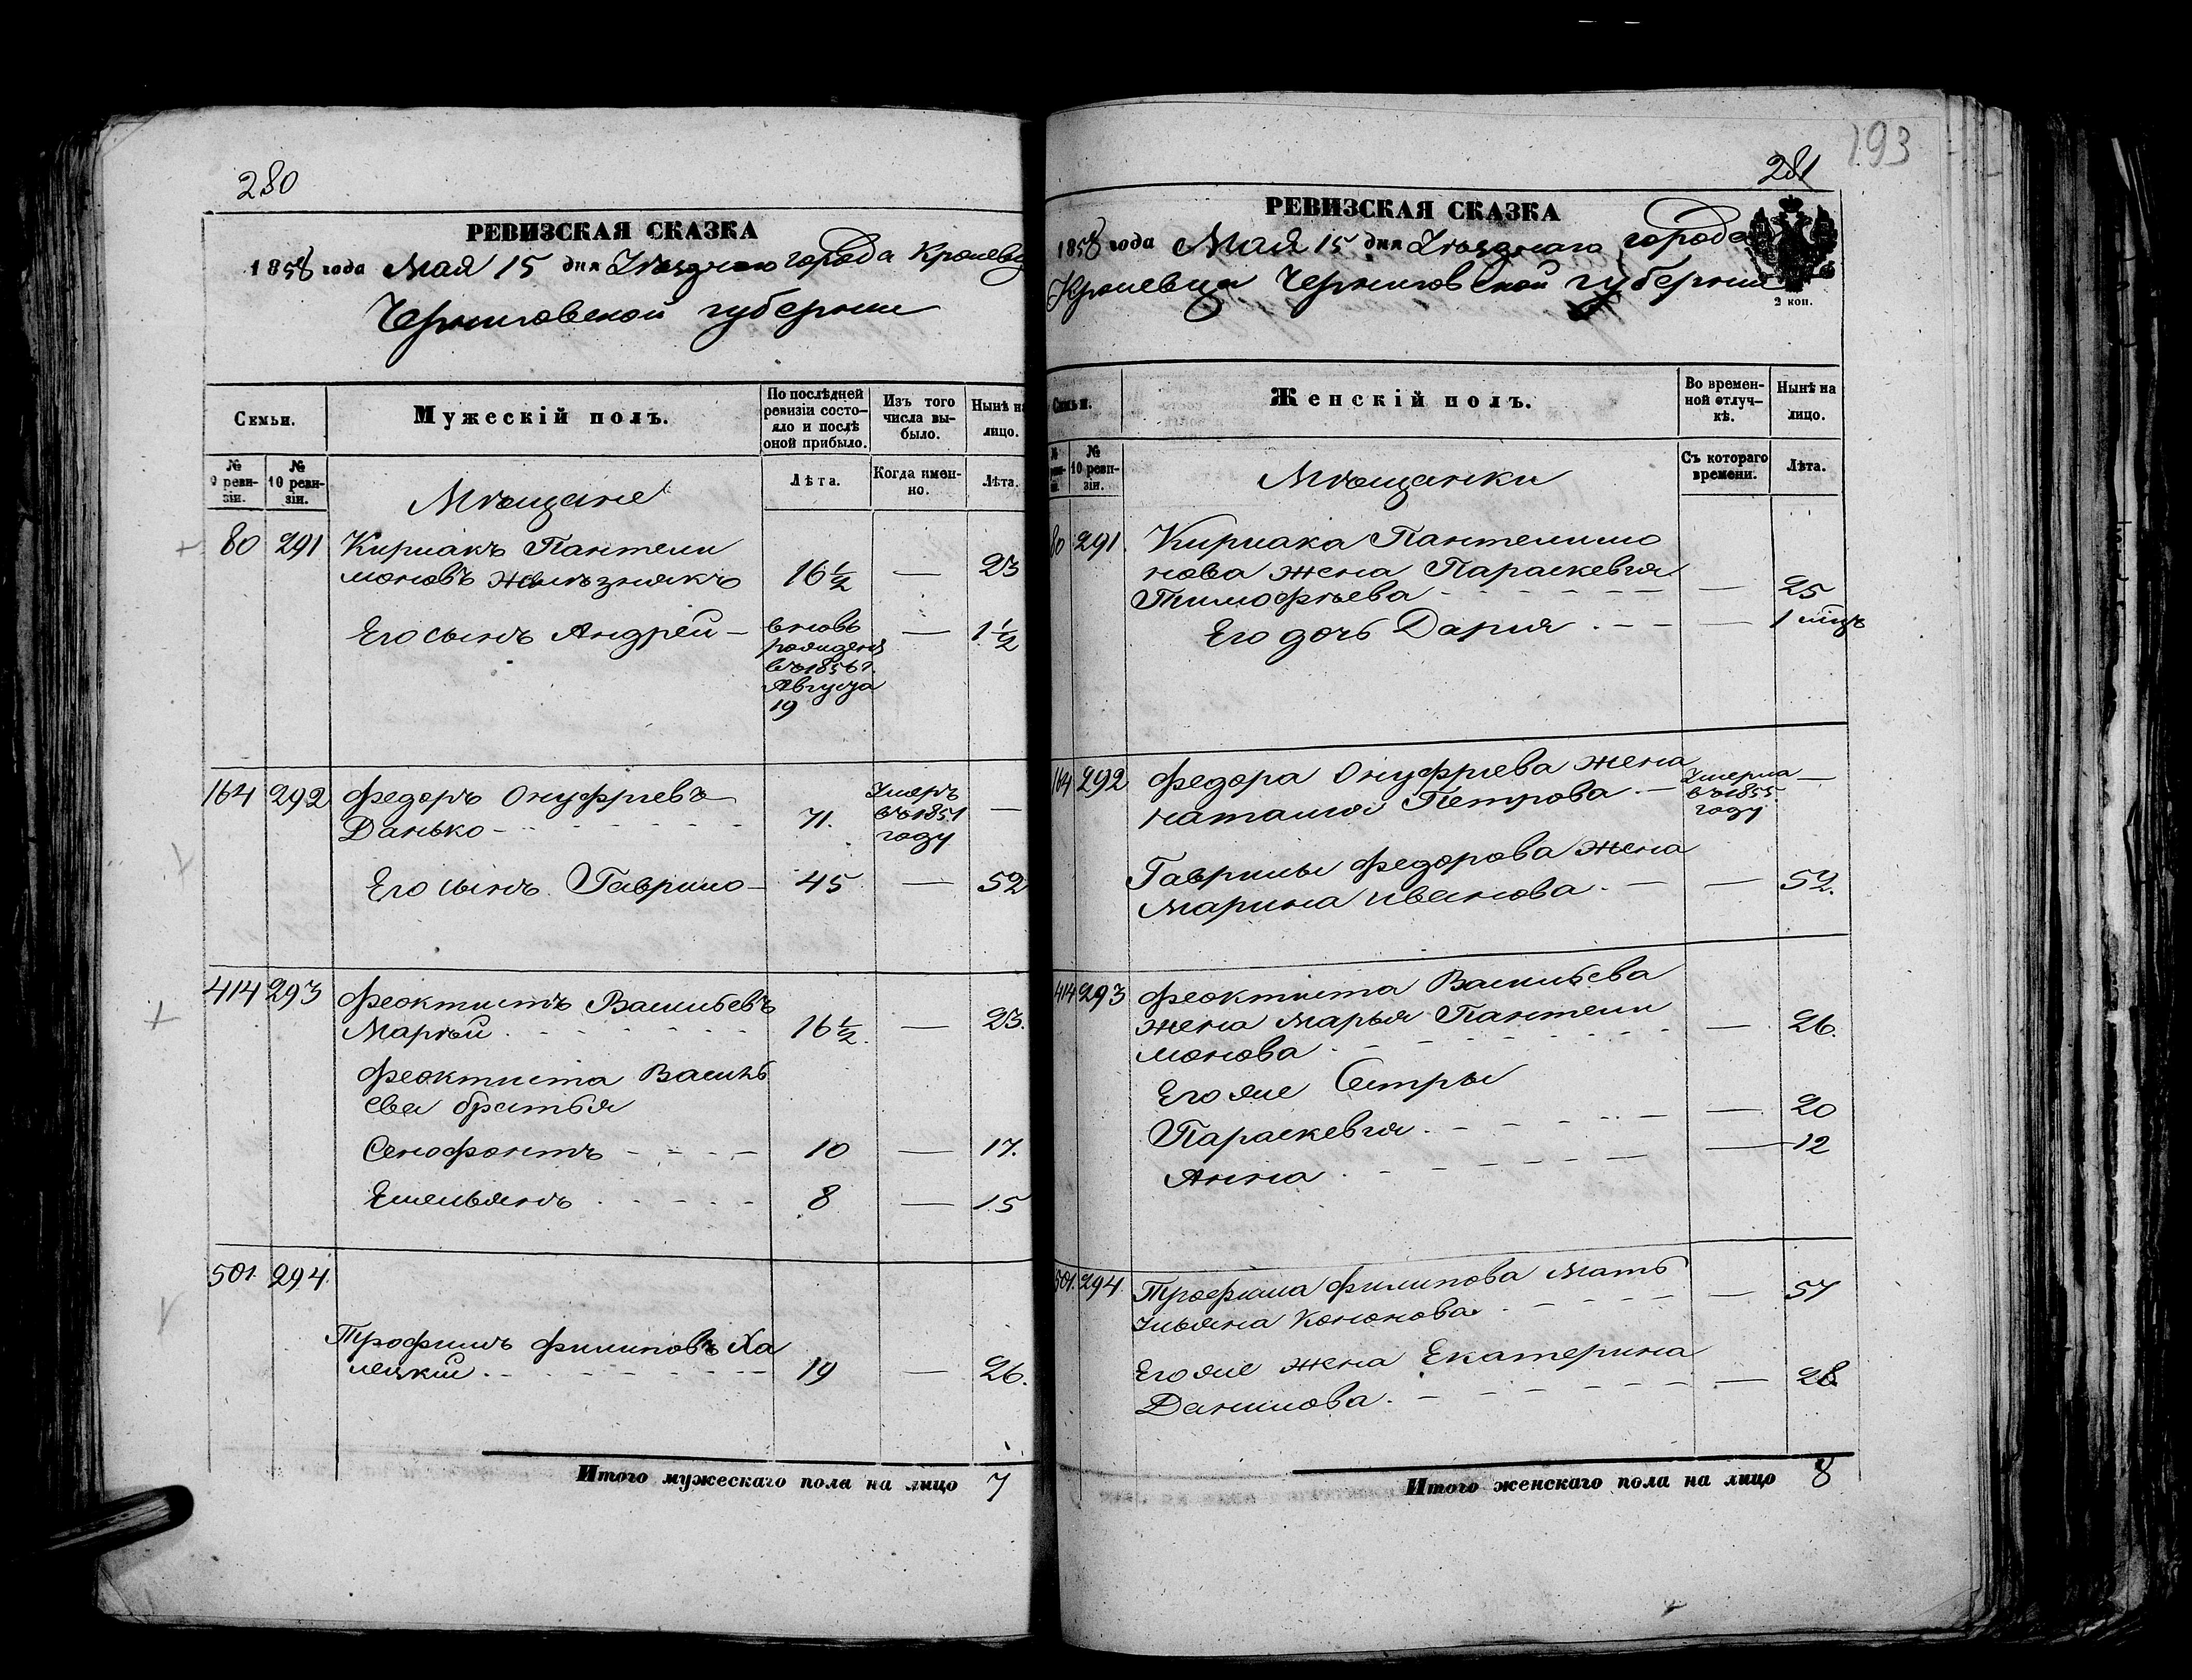 280
РЕВИЗСКАЯ СКАЗКА
1858 года Мая 15 дня Уѣзднаго города Кролевца
Черниговской губерніи
Семьи.
Мужескій полъ.
По послѣдней ревизіи состояло и послѣ оной прибыло.
Изъ того числа выбыло.
Нынѣ на лицо.
№ 9 ревизіи.
№ 10 ревизіи.
Мѣщане
Лѣта.
Когда именно.
Лѣта.
80 291 Кириакъ Пантели
моновъ Желѣзнякъ 16½ — 23
Его сынъ Андрей — вновь — 1½
рожденъ
въ 1856 г.
Августа
19
164 292 Федоръ Онуфріевъ Умеръ
Данько 71. въ 1851 —
году
Его сынъ Гаврило — 45 — 52
414 293 Феоктистъ Васильевъ
Марѣй 16½ — 23.
Феоктиста Василь
ева братья
Сенофонтъ 10 — 17.
Емельянъ 8 — 15
501. 294.
Трофимъ Филиповъ Ха
лецкій 19 — 26.
Итого мужескаго пола на лицо 7
193
281
РЕВИЗСКАЯ СКАЗКА
1858 года Мая 15 дня Уѣзднаго города
Кролевца Черниговской губерніи
2 коп.
Семьи.
Женскій полъ.
Во временной отлучкѣ.
Нынѣ на лицо.
№ 10 ревизіи.
Мѣщанки
Съ котораго времени.
Лѣта.
80 291. Кириака Пантелимо
нова жена Параскевія
Тимофѣева — 25
Его дочь Дарія — 1 мѣц
164 292 Федора Онуфріева жена Умерла —
Наталія Петрова. — въ 1855
году
Гаврилы Федорова жена
Марина Иванова. — 52.
414 293 Феоктиста Васильева
жена Марья Пантели
монова — 26.
Его же Сестры
Параскевія — 20
Анна — 12
501. 294. Трофима Филипова мать
Ульяна Кононова — 57
Его же жена Екатерина
Данилова — 28.
Итого женскаго пола на лицо 8